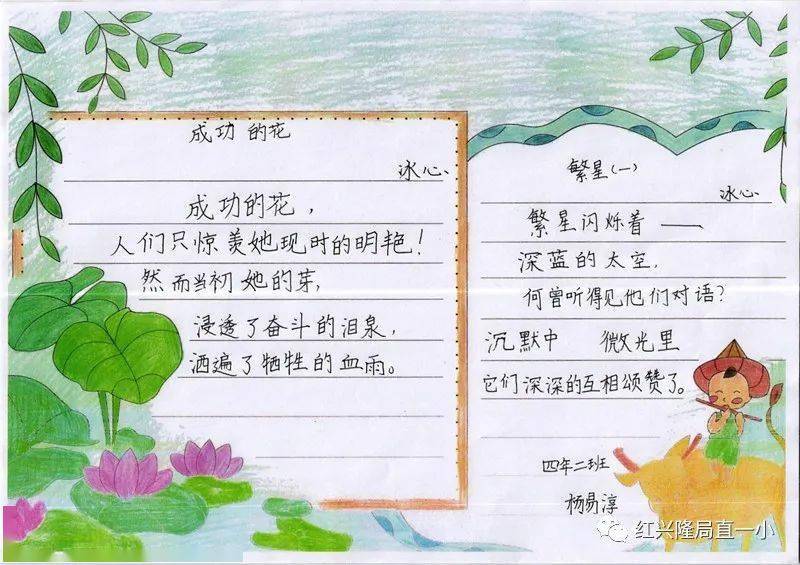 成功的花
冰心
成功的花，
人们只惊羡她现时的明艳！
然而当初她的芽，
浸透了奋斗的泪泉，
洒遍了牺牲的血雨。
繁星（一）
冰心
繁星闪烁着——
深蓝的太空，
何曾听得见他们对语？
沉默中 微光里
它们深深的互相颂赞了。
四年二班
杨易淳
红兴隆局直一小